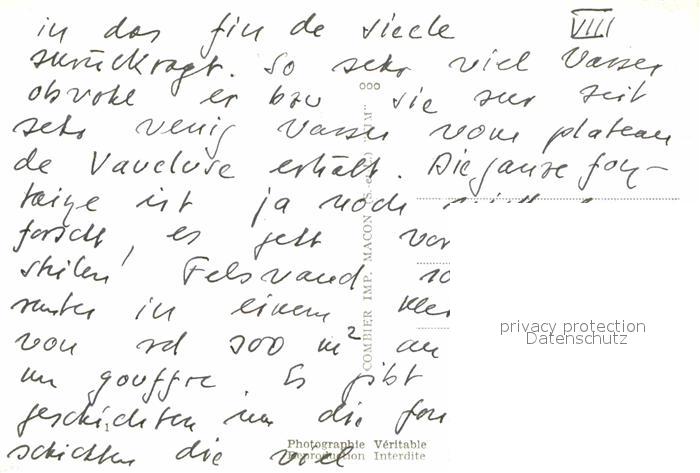 in das fin de siecle VIII
zurückragt. So sehr viel Wasser
obwohl er bzw sie zur Zeit
sehr wenig Wasser vom plateau
de Vaucluse erhält. Die ganze fon-
taine ist ja noch
forscht, es geht vor
steilen Felswand
runter in einem
von rd 200 m² an
un gouffre. Es gibt
geschichten um die fon
schichten die viel
COMBIER IMP. MACON
privacy protection
Datenschutz
Photographie Véritable
Reproduction Interdite